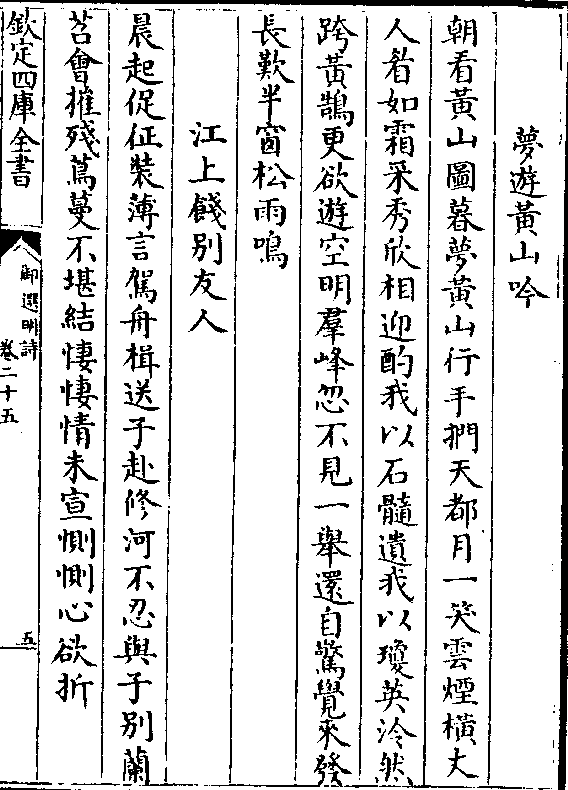 夢遊黃山吟
朝看黃山圖暮夢黃山行手捫天都月一笑雲煙橫丈
人者如霜采秀欣相迎酌我以石髓遺我以瓊英泠然
跨黃鵠更欲遊空明羣峰忽不見一舉還自驚覺來發
長歎半窗松雨鳴
江上餞別友人
晨起促征裝薄言駕舟楫送子赴修河不忍與子别蘭
苕會摧殘蔦蔓不堪結悽悽情未宣惻惻心欲折
欽定四庫全書
御選明詩
卷二十五
五